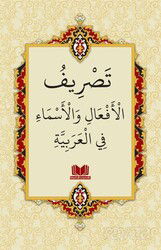 تَصْرِيفُ
الْأَفْعَالِ وَالْأَسْمَاءِ
فِي الْعَرَبِيَّةِ